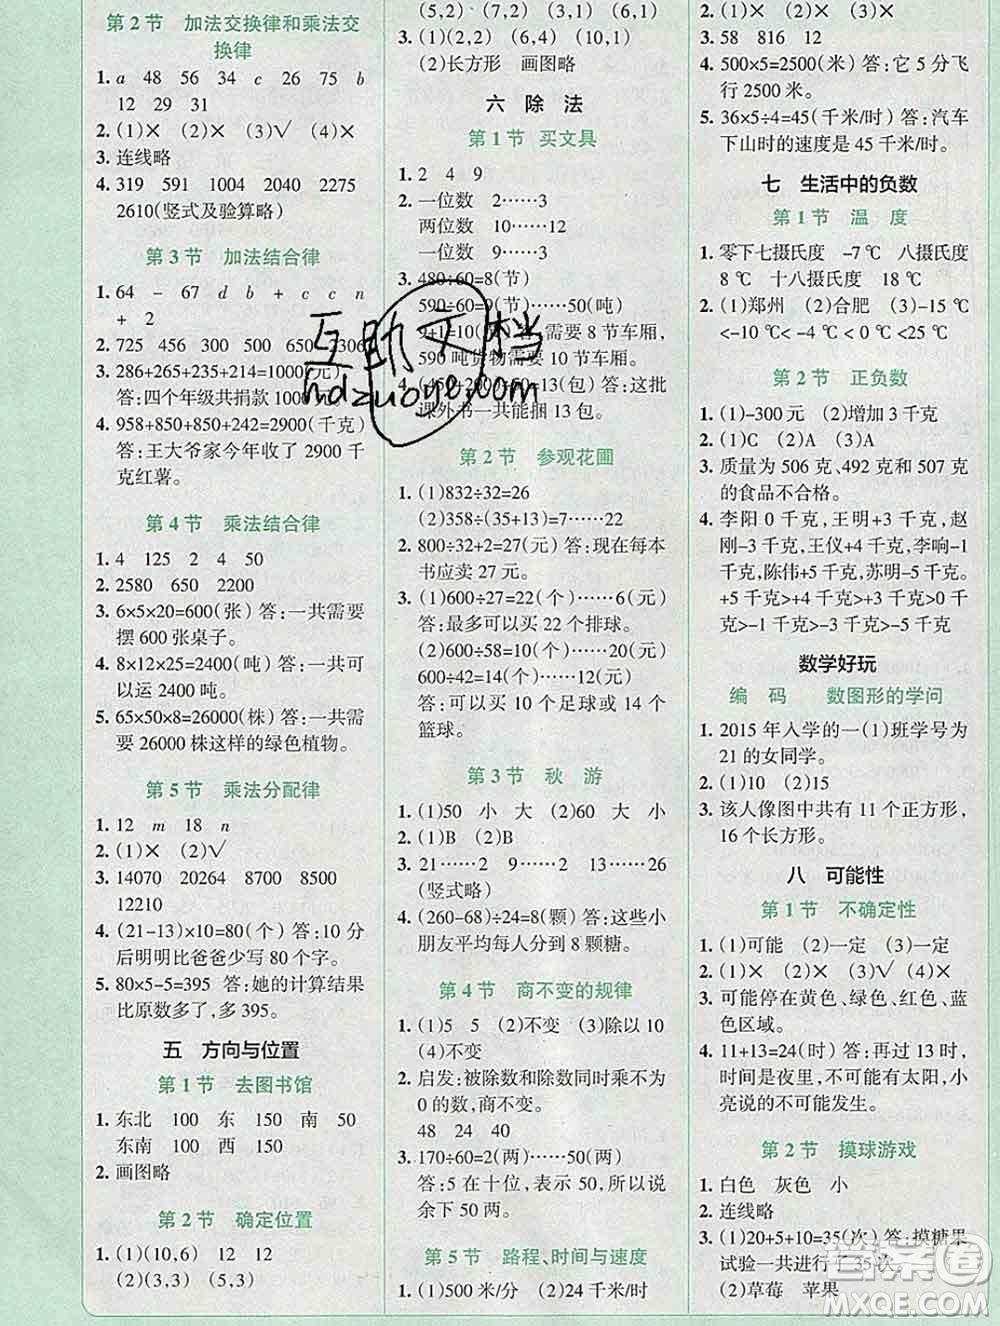 第2节 加法交换律和乘法交
换律
1. a 48 56 34 c 26 75 b
12 29 31
2. (1)× (2)× (3)√ (4)×
3. 连线略
4. 319 591 1004 2040 2275
2610(竖式及验算略)
第3节 加法结合律
1. 64 - 67 d b + c c n
+ 2
2. 725 448 300 500 7500
3. 286+265+235+214=1000(元)
答:四个年级共捐款 1000 元。
4. 958+850+850+242=2900(千克)
答:王大爷家今年收了 2900 千
克红薯。
第4节 乘法结合律
1. 4 125 2 4 50
2. 2580 650 2200
3. 6×5×20=600(张) 答:一共需要
摆 600 张桌子。
4. 8×12×25=2400(吨) 答:一共可
以运 2400 吨。
5. 65×50×8=26000(株) 答:一共需
要 26000 株这样的绿色植物。
第5节 乘法分配律
1. 12 m 18 n
2. (1)× (2)√
3. 14070 20264 8700 8500
12210
4. (21-13)×10=80(个) 答:10 分
后明明比爸爸少写 80 个字。
5. 80×5-5=395 答:她的计算结果
比原数多了,多 395。
五 方向与位置
第1节 去图书馆
1. 东北 100 东 150 南 50
东南 100 西 150
2. 画图略
第2节 确定位置
1. (1)(10,6) 12 12
(2)(3,3) (5,3)
(5,2) (7,6) (10,3)
3. (1)(2,2) (6,4) (10,2)
(2)长方形 画图略
六 除法
第1节 买文具
1. 2 4 9
2. 一位数 2……3
两位数 10……12
一位数 9……3
3. 480÷60=8(节)
590÷60=9(节)……50(吨)
9+1=10(节) 答:需要 8 节车厢,
590 吨货物需要 10 节车厢。
4. 答:这批
课外书一共能捆 13 包。
第2节 参观花圃
1. (1)832÷32=26
(2)358÷(35+13)=7……22
2. 800÷32+2=27(元) 答:现在每本
书应卖 27 元。
3. (1)600÷27=22(个)……6(元)
答:最多可以买 22 个排球。
(2)600÷58=10(个)……20(元)
600÷42=14(个)……12(元)
答:可以买 10 个足球或 14 个
篮球。
第3节 秋 游
1. (1)50 小 大 (2)60 大 小
2. (1)B (2)B
3. 21……2 9……2 13……26
(竖式略)
4. (260-68)÷24=8(颗) 答:这些小
朋友平均每人分到 8 颗糖。
第4节 商不变的规律
1. (1)5 5 (2)不变 (3)除以 10
(4)不变
2. 启发:被除数和除数同时乘不为
0 的数,商不变。
48 24 240
3. 170÷60=2(两)……50(两)
答:5 在十位,表示 50,所以说
余下 50 两。
第5节 路程、时间与速度
1. (1)500 米/分 (2)24 千米/时
2. (1)× (2)× (3)×
3. 58 816 12
4. 500×5=2500(米) 答:它 5 分飞
行 2500 米。
5. 36×5÷4=45(千米/时) 答:汽车
下山时的速度是 45 千米/时。
七 生活中的负数
第1节 温 度
1. 零下七摄氏度 -7 ℃ 八摄氏度
8 ℃ 十八摄氏度 18 ℃
2. (1)郑州 (2)合肥 (3)-15 ℃
<-10 ℃<-2 ℃<0 ℃<25 ℃
第2节 正负数
1. (1)-300 元 (2)增加 3 千克
2. (1)C (2)A
3. 质量为 506 克、492 克和 507 克
的食品不合格。
4. 李阳 0 千克,王明+3 千克,赵
刚-3 千克,王仪+4 千克,李响-1
千克,陈伟+5 千克,苏明-5 千克。
+5 千克>+4 千克>+3 千克>0 千
克>-1 千克>-3 千克>-5 千克
数学好玩
编 码 数图形的学问
1. 2015 年入学的一(1)班学号为
21 的女同学。
2. (1)10 (2)15
3. 该人像图中共有 11 个正方形,
16 个长方形。
八 可能性
第1节 不确定性
1. (1)可能 (2)一定 (3)一定
2. (1)× (2)× (3)√ (4)×
3. 可能停在黄色、绿色、红色、蓝
色区域。
4. 11+13=24(时) 答:再过 13 时,
时间是夜里,不可能有太阳,小
亮说的不可能发生。
第2节 摸球游戏
1. 白色 灰色 小
2. 连线略
3. (1)20+5+10=35(次) 答:摸糖果
试验一共进行了 35 次。
(2)草莓 苹果
互助文档
hdzuoye.com
答案圈
MXQE.COM